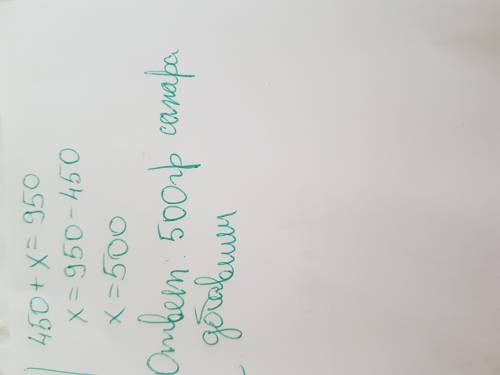 450 + x = 950
x = 950 - 450
x = 500
Ответ: 500 гр сахара
добавили